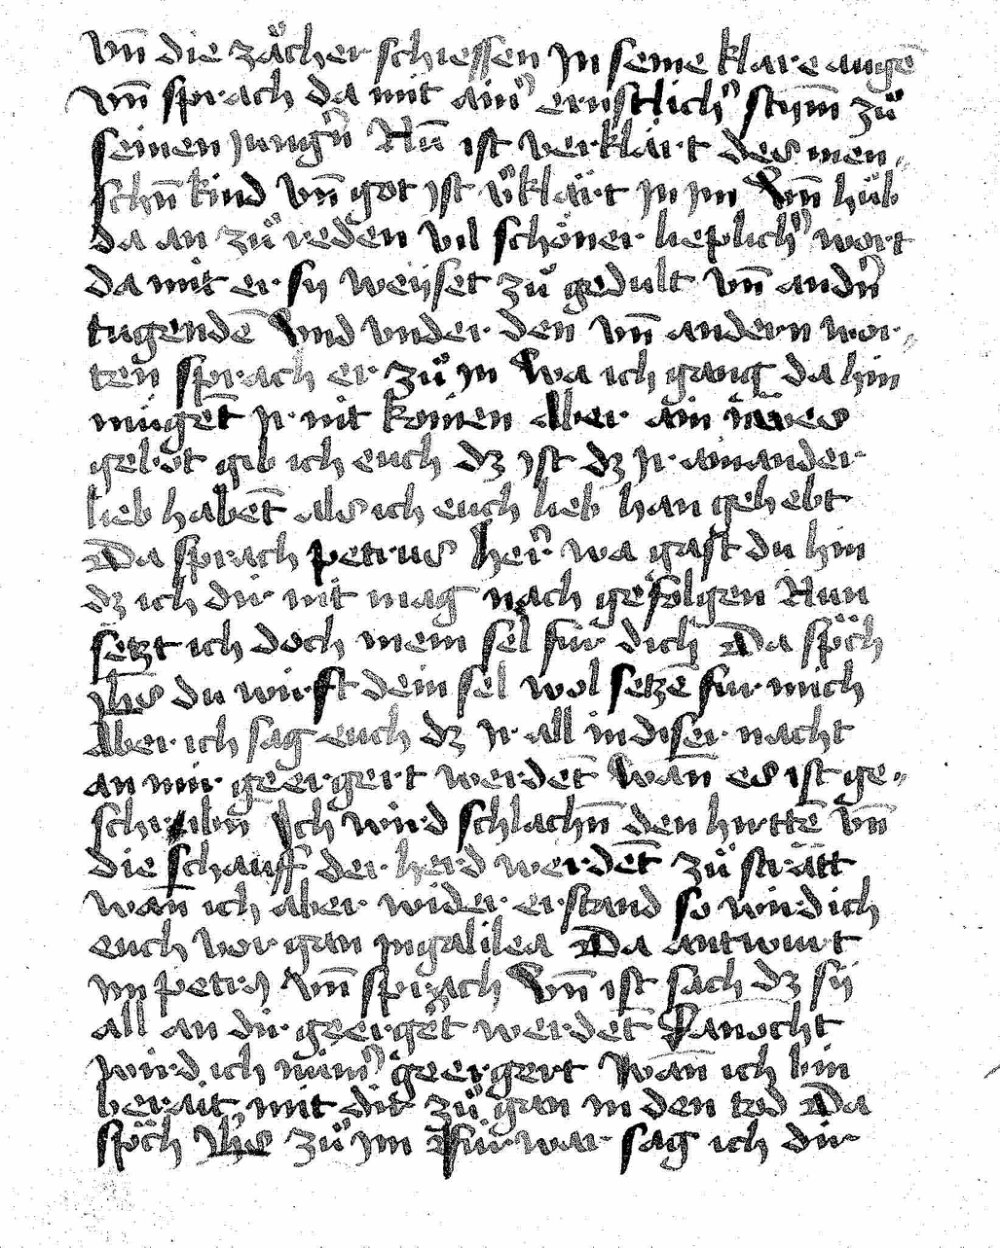 vn̄ die zächer schiessen jn seine klare auge̅
vn̄ sprach da mit ainꝰ ernstlichꝰ stym̄ zů
seinen jungn̄ Nu̅ ist verklärt des men„
schn̄ kind vn̄ got ist v̈klärt jn im Vn̄ hůb
da an zů reden vil schöner lieplichꝰ wort
da mit er sy weyset zů gedult vn̄ andn̄
tugende̅ Vnd vnder den vn̄ andern wor„
ten sprach er zů jn Wa ich gang da hin
müget̅ jr nit komen Aber ain nüwes
gebot gib ich euch dz ist dz jr ainander
lieb habet̅ als ich euch lieb han gehebt
Da sprach petrus her̅ wa gast du hin
dz ich dir nit mag nach gefolgen Nun
setzt ich doch mein sel für dich Da sp̈ch
jh̅s du wirst dein sel wol setze̅ für mich
Aber ich sag euch dz jr all in diser nacht
an mir geergert werdet̅ Wan̅ es ist ge„
schribn̄ Ich wird schlachn̄ den hirtte̅ vn̄
die schauff der herd werdet̅ zů strätt
wan̅ ich aber wider erstand so wird ich
euch vor gan in galilea Da antwurt
im petrꝰ vn̄ sprach Vn̄ ist sach dz sy
all an dir geerget̅ werdet̅ Danocht
wird ich nim̅ꝰ geergert Wan̅ ich bin
berait mit dir zů gan in den tod Da
sp̈ch jh̅s zů im Fürwar sag ich dir